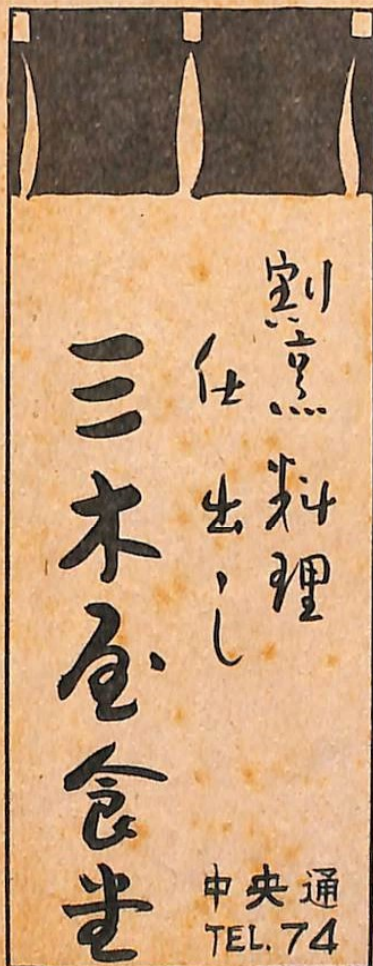 割烹料理
仕出し
三木屋食堂
中央通
TEL. 74